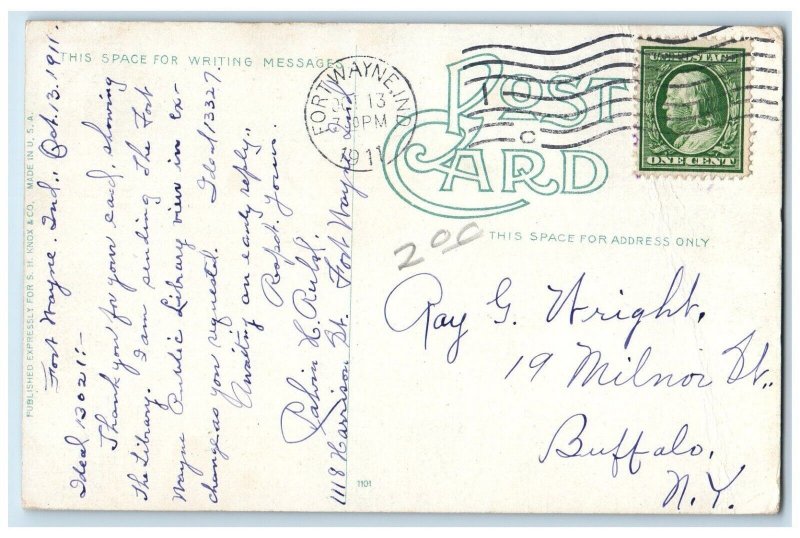 THIS SPACE FOR WRITING MESSAGES
Fort Wayne, Ind., Oct. 13, 1911.
Ideal 13021:-
Thank you for your card, showing
the Library. I am sending the Fort
Wayne Public Library view in ex-
change as you requested. Ideal 13327.
Awaiting an early reply,
Respt. yours.
H.
1118 Harrison St. Fort Wayne Ind
PUBLISHED EXPRESSLY FOR S. H. KNOX & CO. MADE IN U. S. A.
FORT WAYNE, IND
13
PM
1911
POST
CARD
U.S. POSTAGE
ONE CENT
200
THIS SPACE FOR ADDRESS ONLY
Ray G. Wright,
19 Milnor St.,
Buffalo,
N.Y.
1101